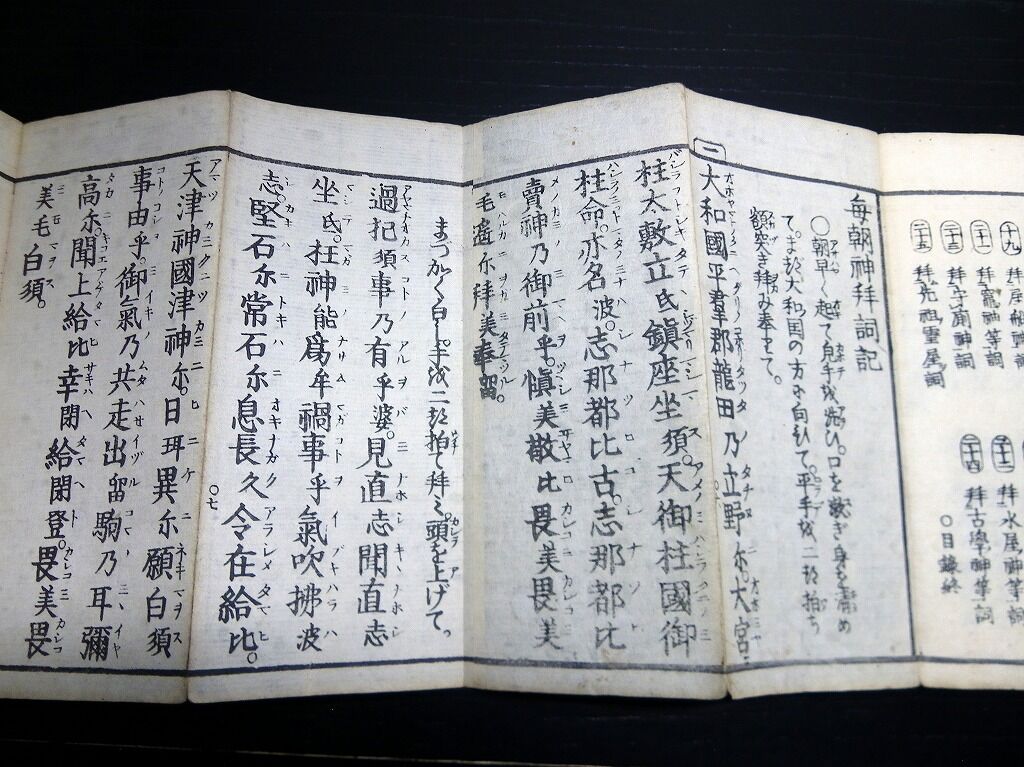 十九 拜屋船神等詞
二十一 拜竈神等詞
二十三 拜字廟神詞
二十五 拜先祖靈屋詞
拜水屋神等詞
二十四 拜古學神等詞
○目録終
毎朝神拜詞記
○朝早く起て貌手を洗ひ。口を漱ぎ身を清め
て。まづ大和国の方に向ひて。平手を二つ拍ち
額突き拜み奉りて。
一
大和國平羣郡龍田乃立野尓。大宮
柱太敷立氐鎮座坐須。天御柱國御
柱命。亦名波。志那都比古。志那都比
賣神乃御前乎。愼美敬比畏美畏美
毛遙尓拜美奉留。
まづかく白し。手を二つ拍て拜み。頭を上げて。
過犯須事乃有乎婆。見直志聞直志
坐氐。枉神能爲牟禍事乎氣吹拂波
志。堅石尓常石尓息長久令在給比。
○七
天津神國津神尓。日珥異尓願白須
事由乎。御氣乃共走出留駒乃耳彌
高尓。聞上給比幸閇給閇登。畏美畏
美毛白須。